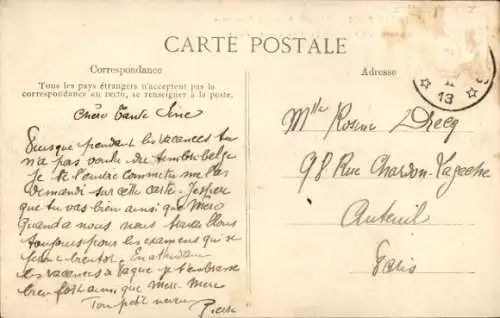 CARTE POSTALE
Correspondance
Tous les pays étrangers n'acceptent pas la
correspondance au recto, se renseigner à la poste.
Adresse
13
Chère Tante Line
Puisque pendant les vacances tu
n'a pas voulu du timbre belge
je te l'envoi comme tu me l'as
demandé sur cette carte. J'espère
que tu vas bien ainsi que Mèro
Quand a nous nous travaillons
toujours pour les examens qui se
feront bientot. En attendant
les vacances a Paque je t'embrasse
bien fort ainsi que Mère-Mero
Ton petit neveu
Pierre
Mlle Rosine Drecq
98 Rue Chardon-Lagache
Auteuil
Paris